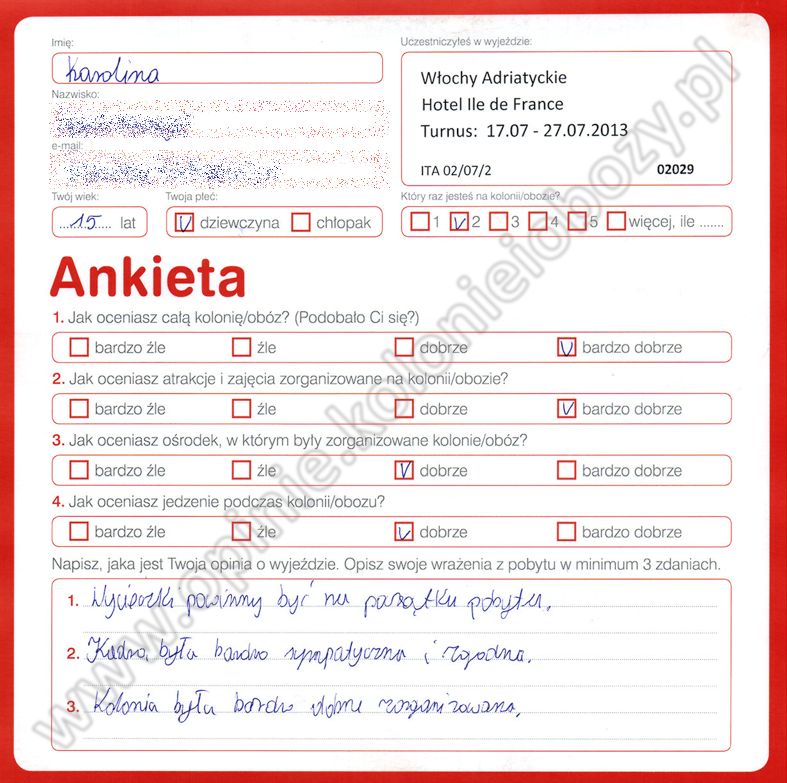 Imię:
Karolina
Nazwisko:
e-mail:
Twój wiek:
15 lat
Twoja płeć:
dziewczyna chłopak
Uczestniczyłeś w wyjeździe:
Włochy Adriatyckie
Hotel Ile de France
Turnus: 17.07 - 27.07.2013
ITA 02/07/2 02029
Który raz jesteś na kolonii/obozie?
1 2 3 4 5 więcej, ile .......
Ankieta
1. Jak oceniasz całą kolonię/obóz? (Podobało Ci się?)
bardzo źle źle dobrze bardzo dobrze
2. Jak oceniasz atrakcje i zajęcia zorganizowane na kolonii/obozie?
bardzo źle źle dobrze bardzo dobrze
3. Jak oceniasz ośrodek, w którym były zorganizowane kolonie/obóz?
bardzo źle źle dobrze bardzo dobrze
4. Jak oceniasz jedzenie podczas kolonii/obozu?
bardzo źle źle dobrze bardzo dobrze
Napisz, jaka jest Twoja opinia o wyjeździe. Opisz swoje wrażenia z pobytu w minimum 3 zdaniach.
1. Wycieczki powinny być na początku pobytu.
2. Kadra była bardzo sympatyczna i zgodna.
3. Kolonia była bardzo dobrze zorganizowana.
www.opinie.kolonieiobozy.pl